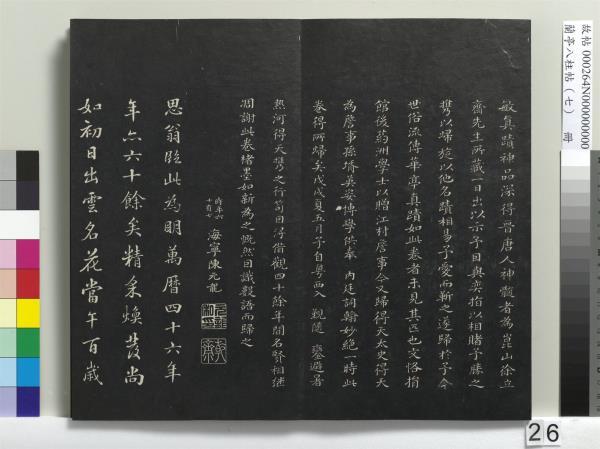 故帖 000264N000000000
蘭亭八柱帖(七) 冊
敏真蹟神品深得晉唐人神髓者為崑山徐立
齋先生所藏一日出以示予目與奕指以相賭予勝之
携以歸旋以他名蹟相易予愛而靳之遂歸於予今
世俗流傳華亭真蹟如此卷者未見其匹也文恪指
館後蒭洲學士以贈江村詹事今又歸得天太史得天
為詹事孫壻與安博學供奉 内廷詞翰妙絕一時此
卷得所歸矣戊戌夏五月予自粤西入 覲隨 鑾避暑
熱河得天携之行笥因得借觀四十餘年間名賢相繼
凋謝此卷褚墨如新為之慨然因識數語而歸之
時年六十有七 海寧陳元龍
思翁臨此為明萬曆四十六年
年六六十餘矣精采煥發尚
如初日出雲名花當午百歲
26